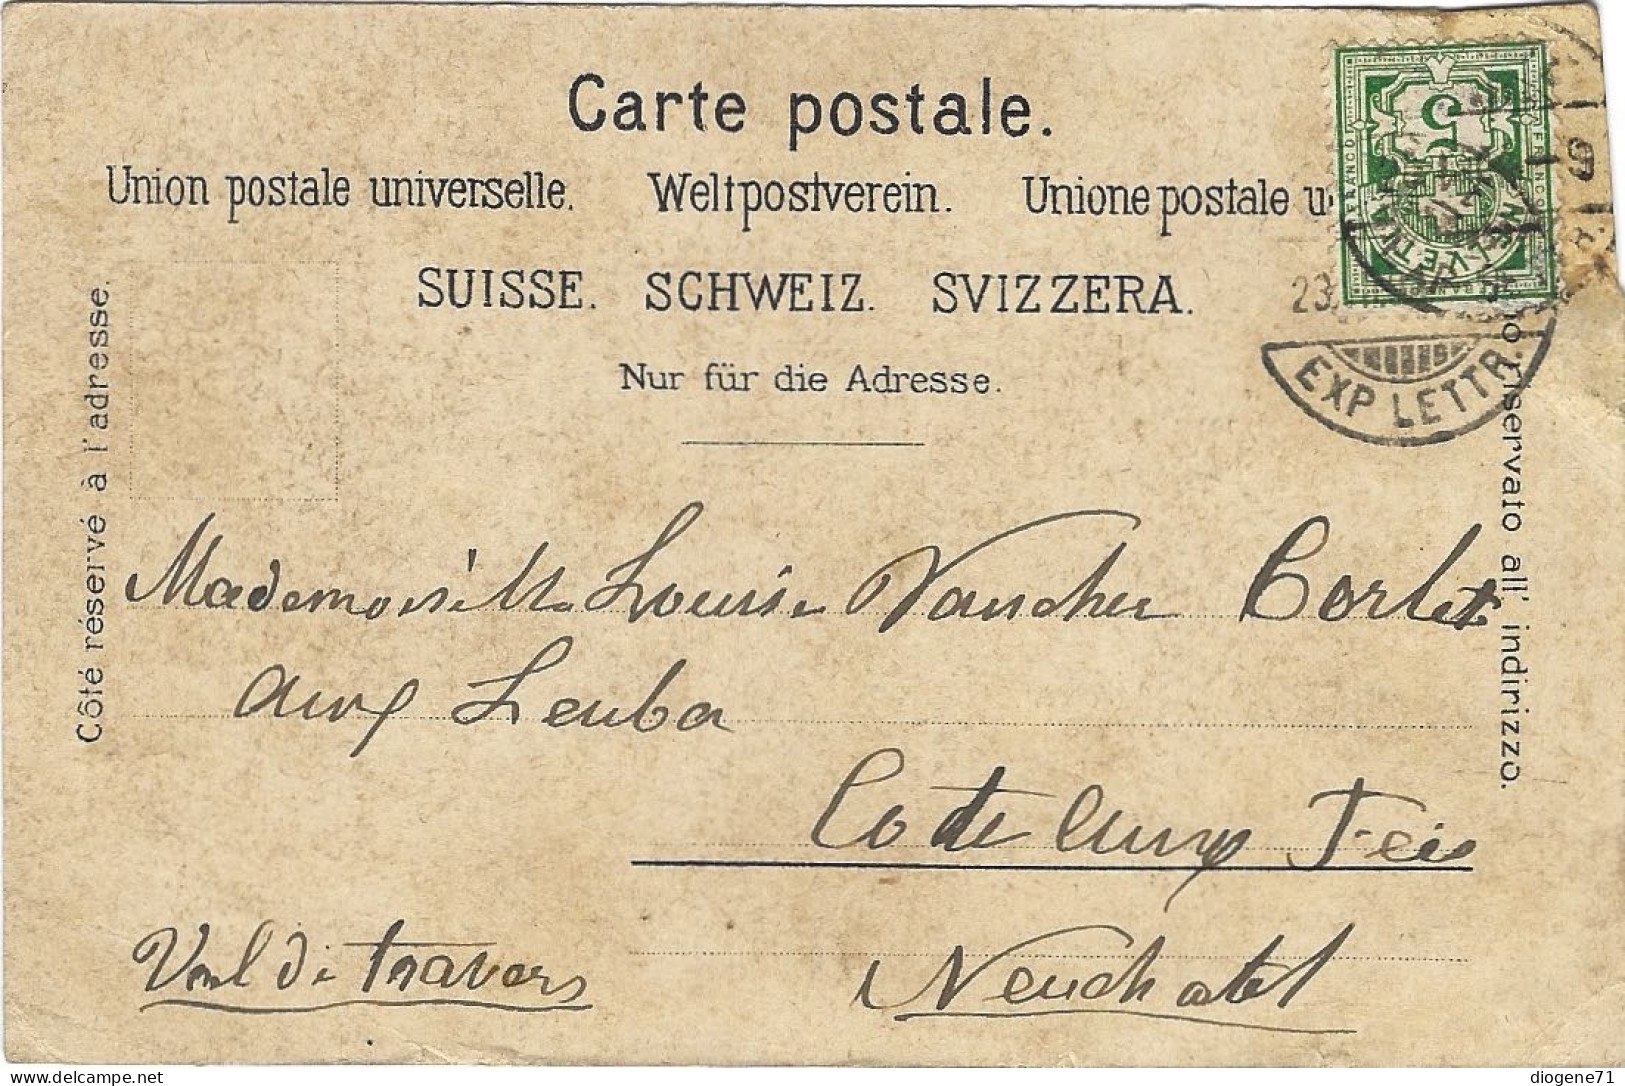 Carte postale.
Union postale universelle. Weltpostverein. Unione postale u
SUISSE. SCHWEIZ. SVIZZERA.
Nur für die Adresse.
Côté réservé à l'adresse.
riservato all' indirizzo.
5
FRANCO
FRANCO
HELVETIA
23
EXP. LETTR.
Mademoiselle Louise Vaucher Corlet
aux Leuba
Cote Aux Feés
Val de travers
Neuchatel
diogene71